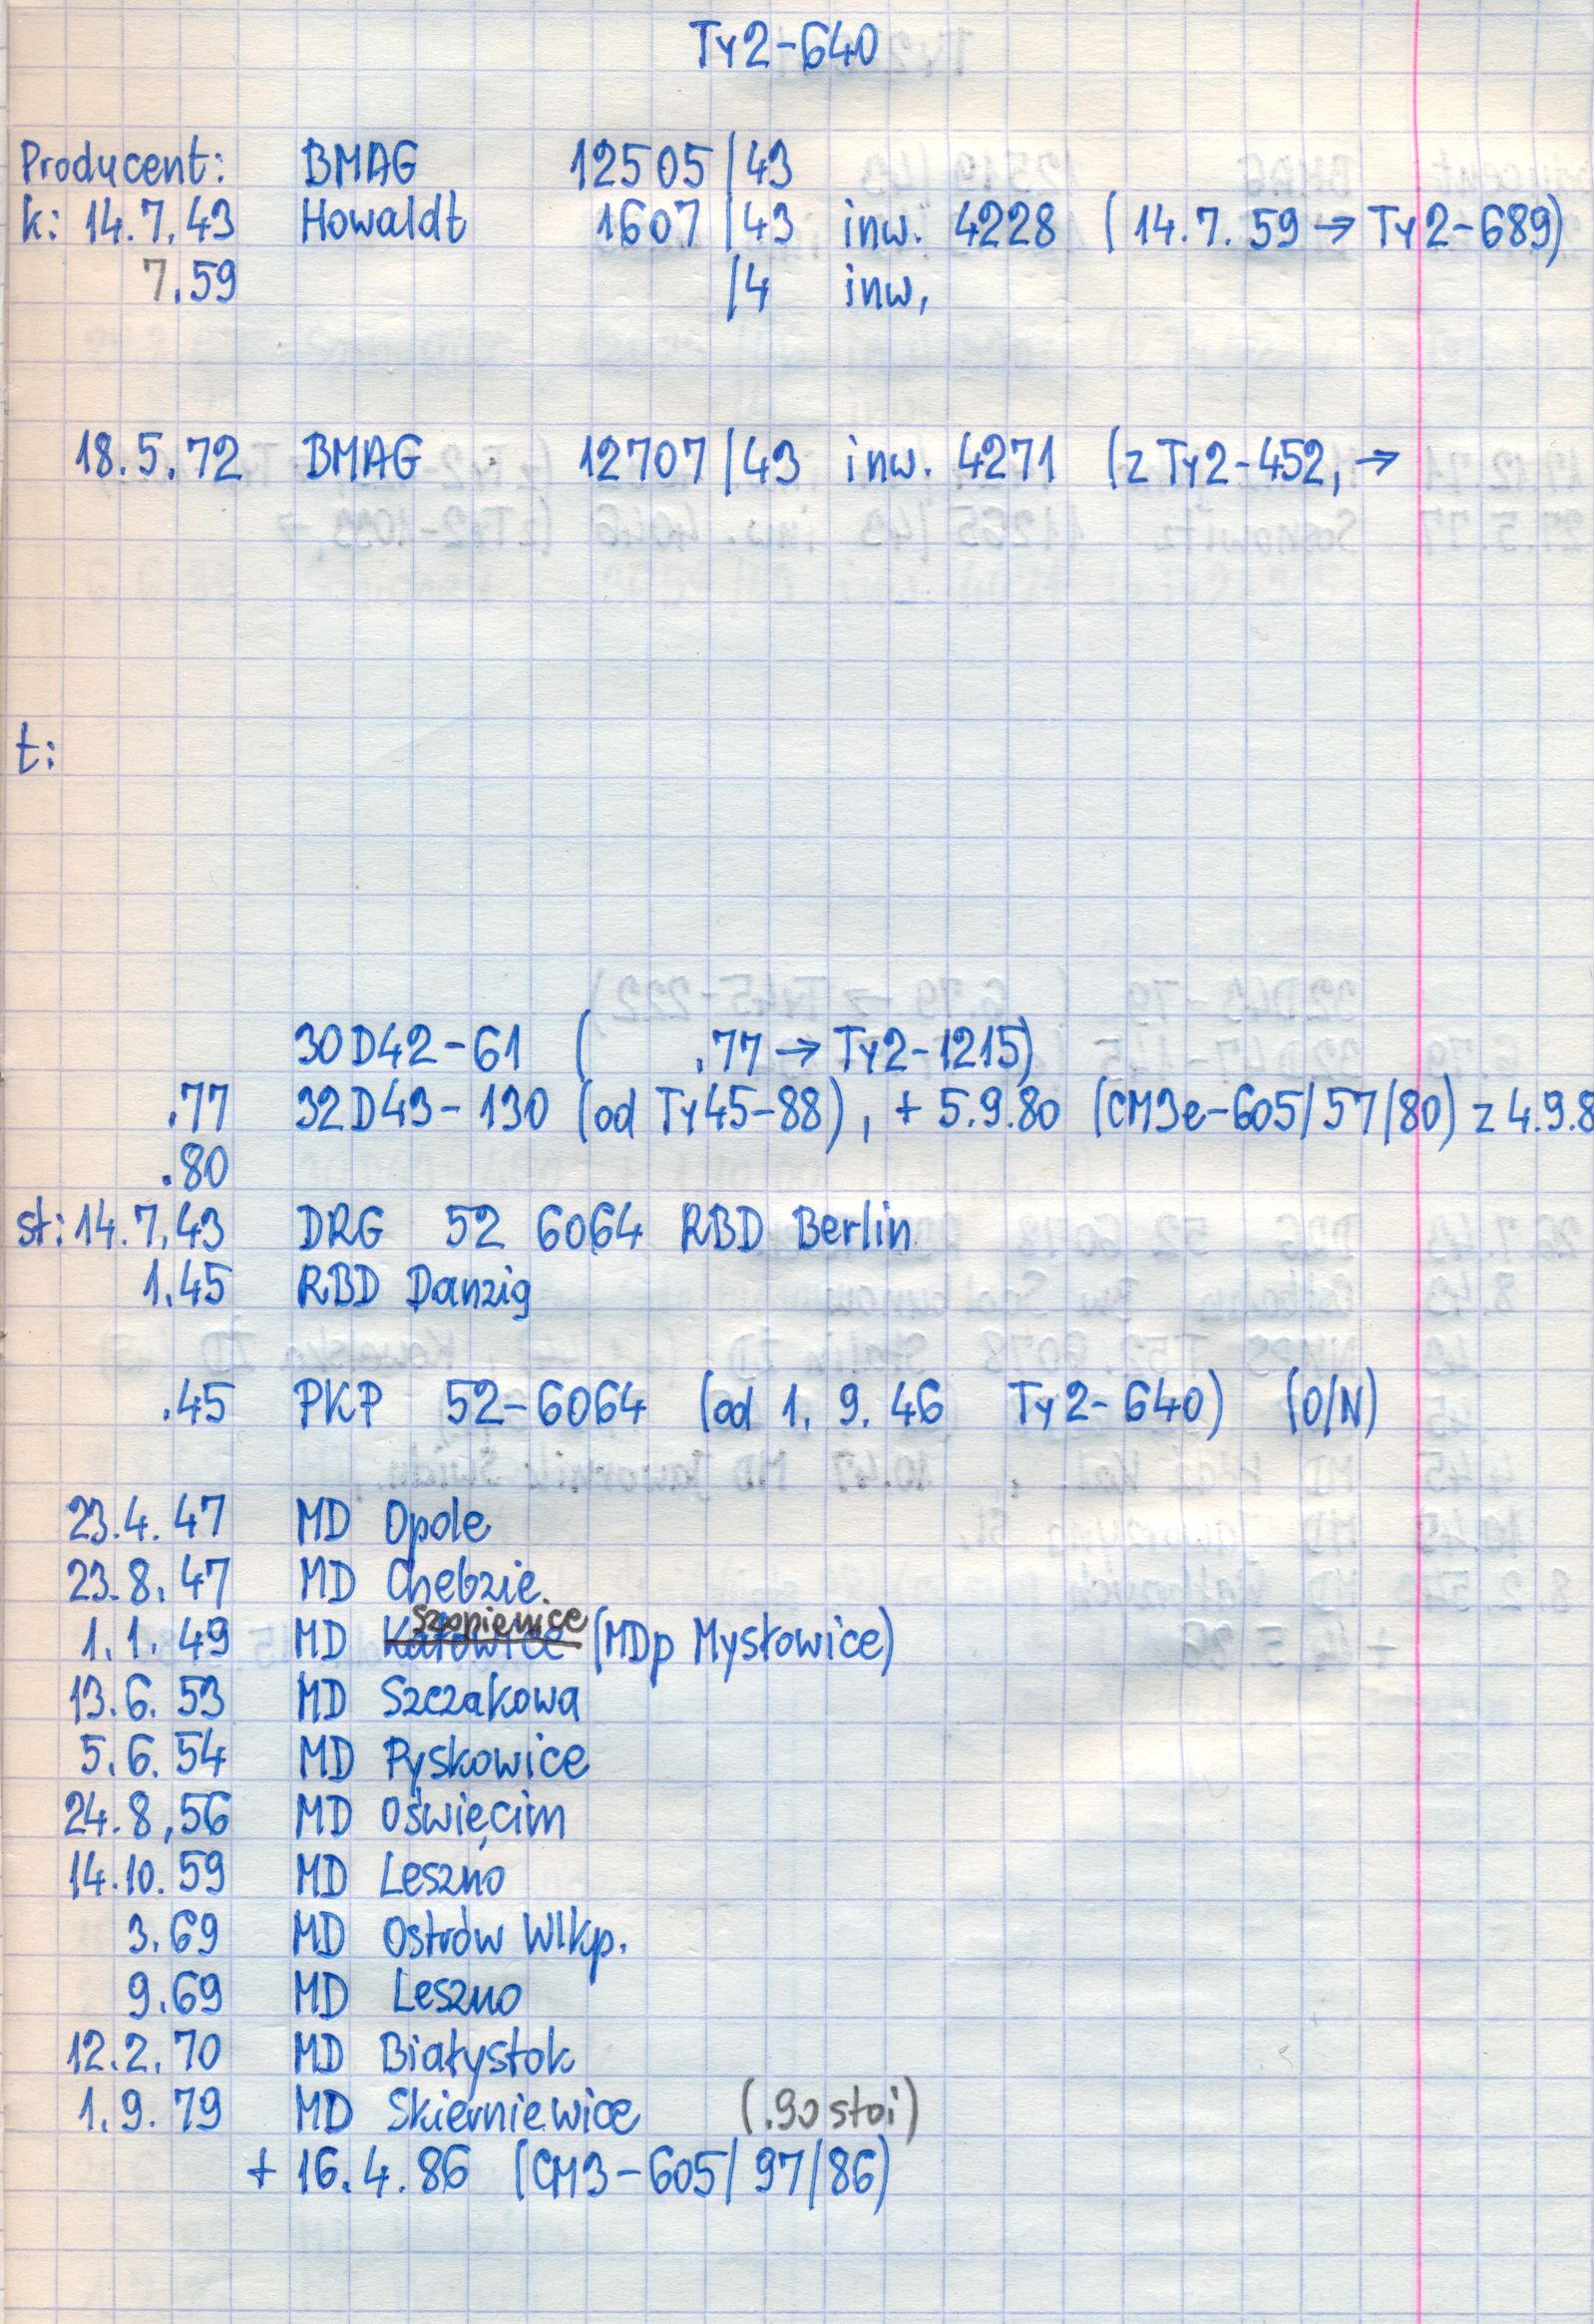 Ty2-640
Producent: BMAG 12505/43
k: 14.7.43 Howaldt 1607/43 inw. 4228 (14.7.59 → Ty2-689)
7.59 /4 inw.
18.5.72 BMAG 12707/43 inw. 4271 (z Ty2-452, →
t:
30D42-61 ( .77 → Ty2-1215)
.77 32D43-130 (od Ty45-88), + 5.9.80 (CM3e-605/57/80) z 4.9.8
.80
st: 14.7.43 DRG 52 6064 RBD Berlin
1.45 RBD Danzig
.45 PKP 52-6064 (od 1.9.46 Ty2-640) (O/N)
23.4.47 MD Opole
23.8.47 MD Chebzie.
Szopienice
1.1.49 MD Katowice (MDp Mysłowice)
13.6.53 MD Szczakowa
5.6.54 MD Pyskowice
24.8,56 MD Oświęcim
14.10.59 MD Leszno
3.69 MD Ostrów Wlkp.
9.69 MD Leszno
12.2.70 MD Białystok
1.9.79 MD Skierniewice (.90 stoi)
+ 16.4.86 (CM3-605/97/86)